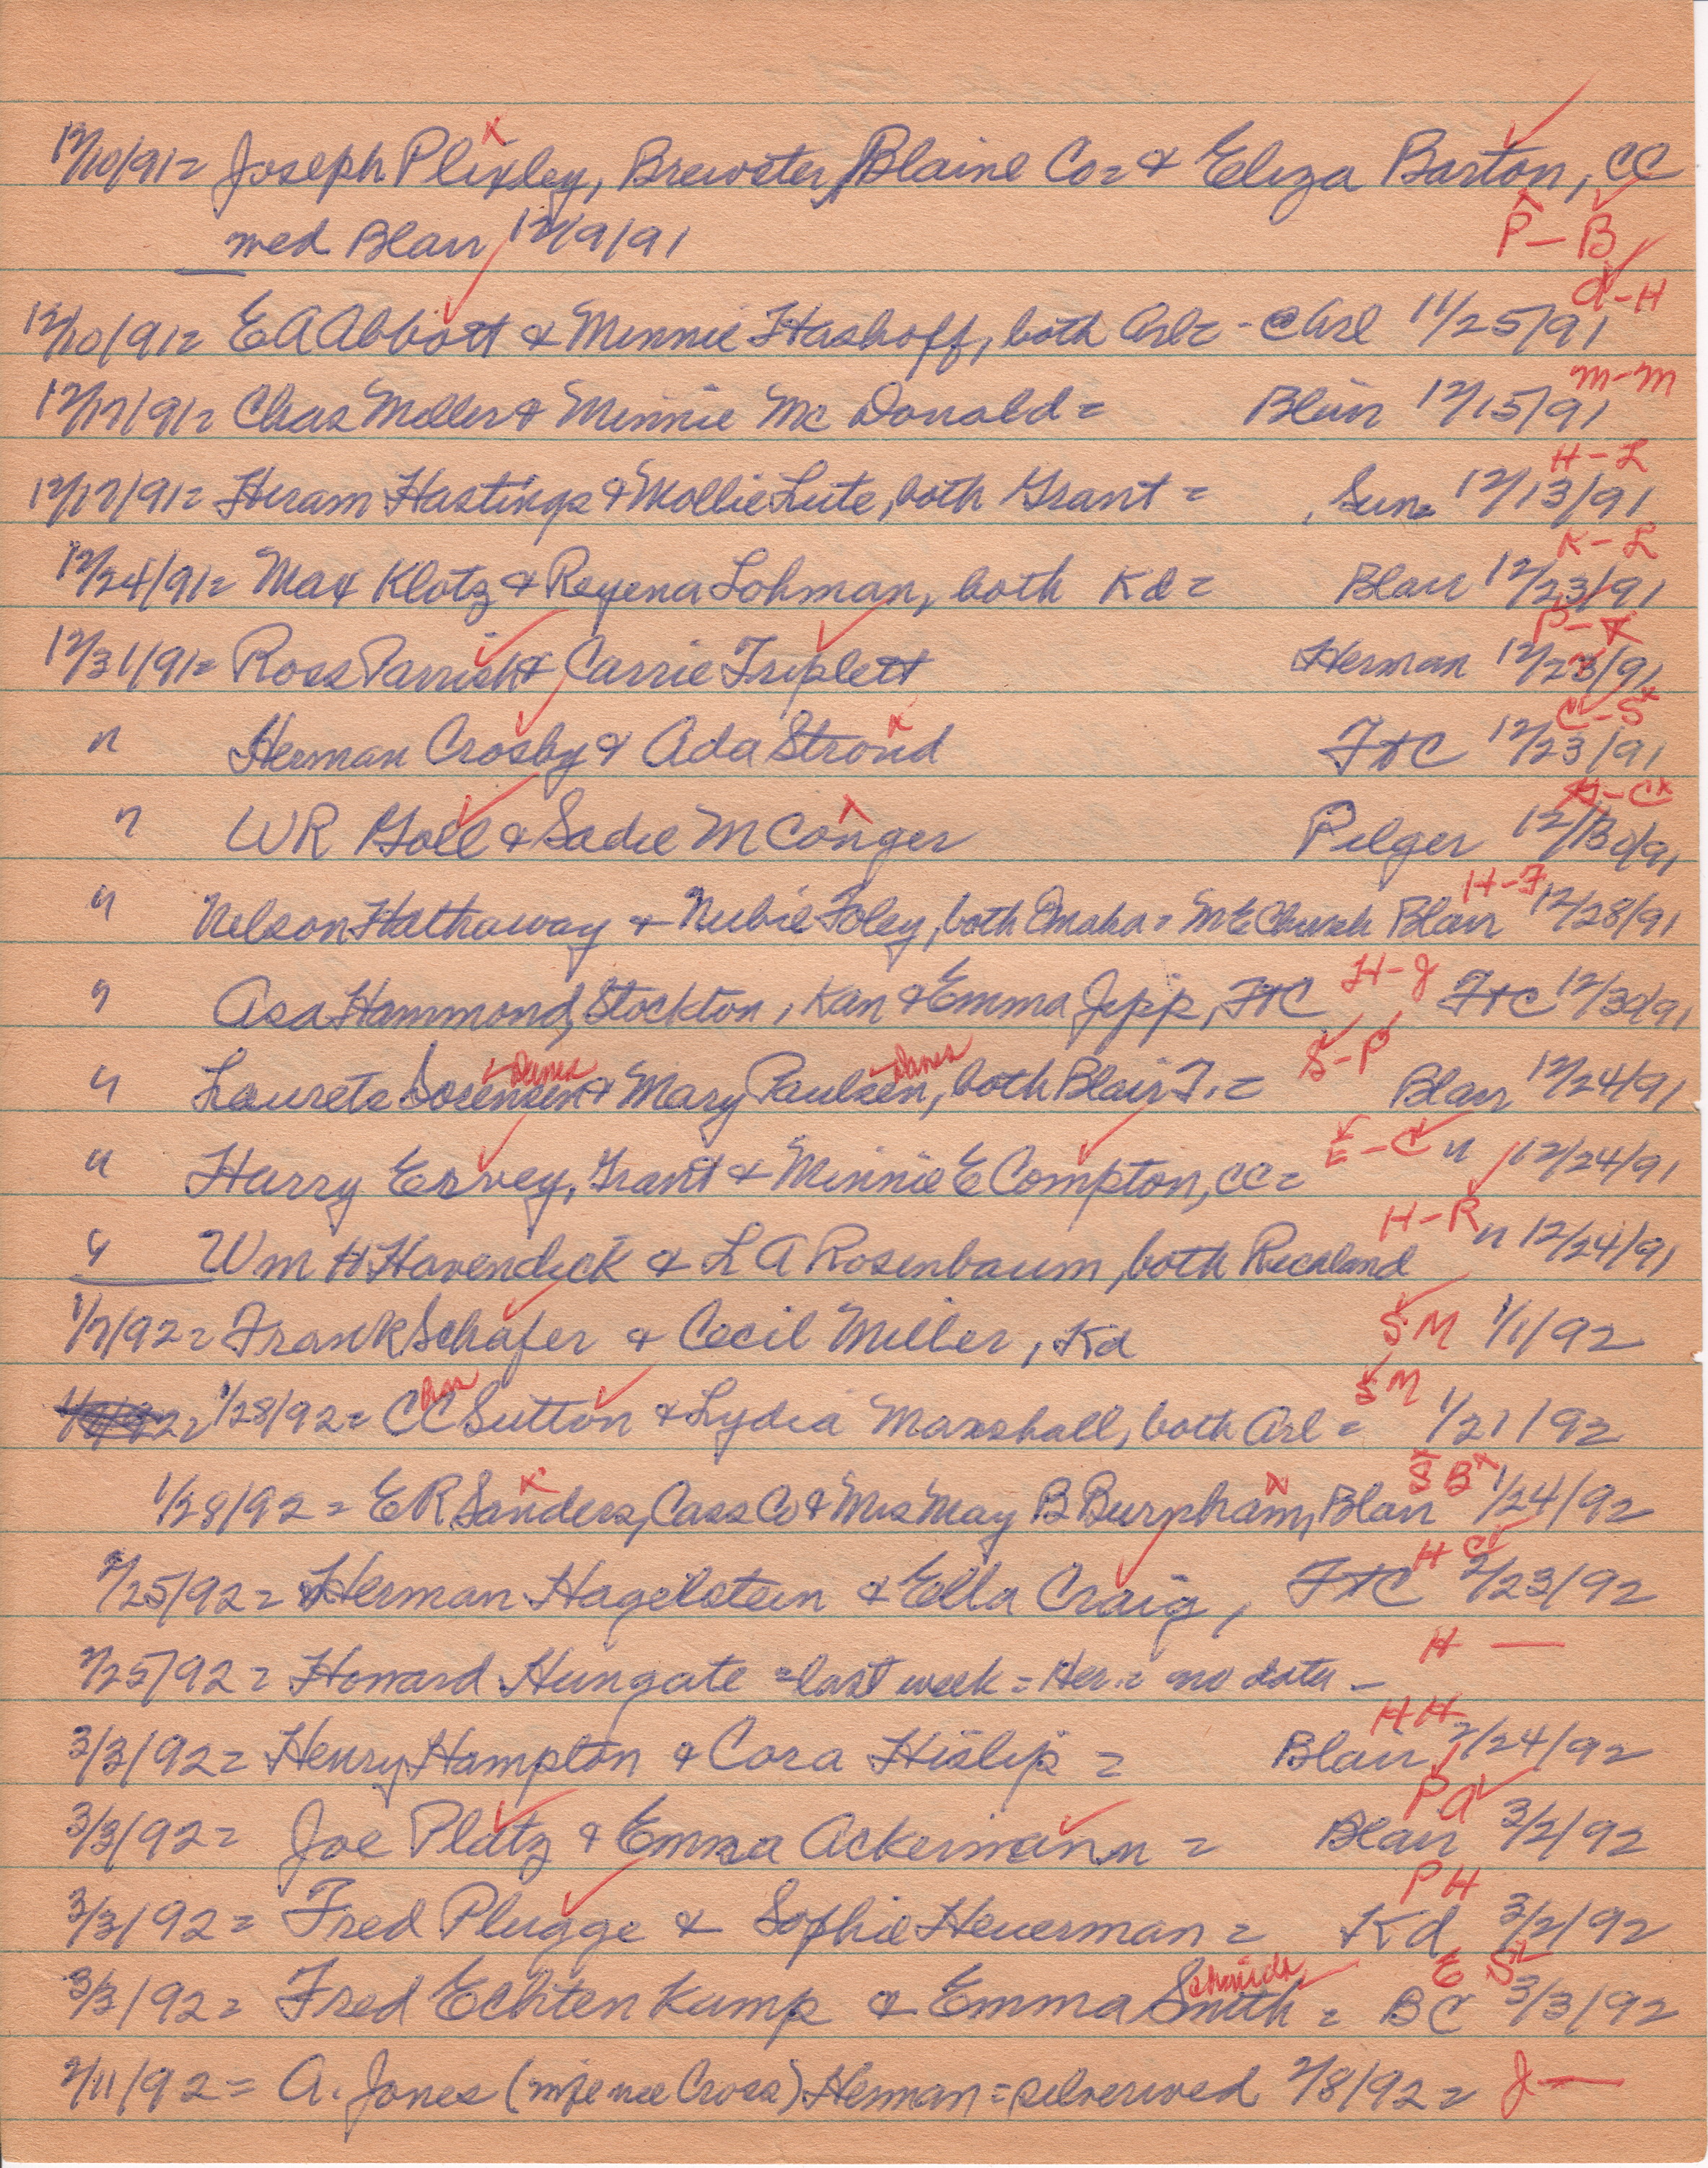 12/10/91= Joseph Plixley, Brewster, Blaine Co= & Eliza Barton, CC
wed Blair 12/9/91 P-B
12/10/91= EA Abbott & Minnie Hashoff, both Arl= - @ Arl 11/25/91 A-H
12/17/91= Chas Moller & Minnie McDonald= Blair 12/15/91 M-M
12/17/91= Hiram Hastings & Mollie Lute, both Grant= Sun= 12/13/91 H-L
12/24/91= Max Klotz & Reyena Lohman, both Kd= Blair 12/23/91 K-L
12/31/91= Ross Parrish & Carrie Triplett Herman 12/23/91 P-T
" Herman Crosby & Ada Stroud FtC 12/23/91 C-S
" WR Goll & Sadie M Conger Pilger 12/30/91 G-C
" Nelson Hathaway & Nubie Foley, both Omaha= ME Church Blair 12/28/91 H-F
" Asa Hammond, Stockton, Kan & Emma Jipp, FtC H-J FtC 12/30/91
" Laurets Sorensen & Mary Paulsen, both Blair T.= S-P Blair 12/24/91
" Harry Ervey, Grant & Minnie E Compton, CC= E-C " 12/24/91
" Wm H Havendick & L A Rosenbaum, both Richland H-R " 12/24/91
1/7/92= Frank Schafer & Cecil Miller, Kd S M 1/1/92
1/28/92= CC Sutton & Lydia Marshall, both Arl= S M 1/21/92
1/28/92= E R Sanders, Cass Co & Mrs May B Burnham, Blair S B 1/24/92
2/25/92= Herman Hagelstein & Ella Craig, FtC H C 2/23/92
2/25/92= Howard Hungate =last week= Her.= no data - H —
3/3/92= Henry Hampton & Cora Hislip= Blair 2/24/92 H H
3/3/92= Joe Platz & Emma Ackermann= Blair 3/2/92 P A
3/3/92= Fred Plugge & Sophie Heuerman= Kd 3/2/92 P H
3/3/92= Fred Echtenkamp & Emma Smith= BC 3/3/92 E S
2/11/92= A. Jones (wife nee Cross) Herman= silverwed 2/8/92= J —